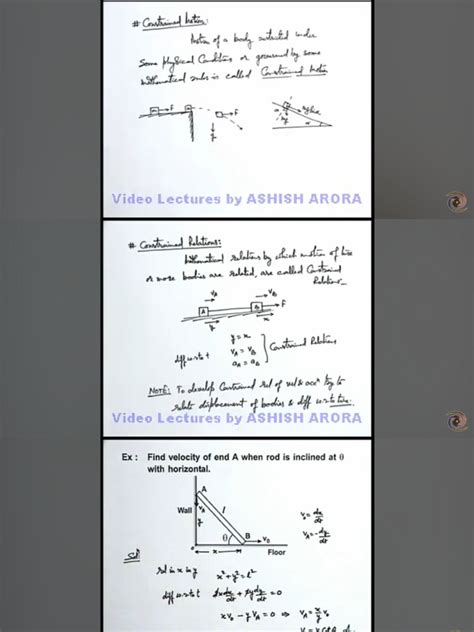 # Constrained Motion:
Motion of a body restricted under
Some physical Conditions or governed by some
Mathematical rules is called Constrained Motion
m F m F
g
mg
α
Video Lectures by ASHISH ARORA
# Constrained Relations:
Mathematical relations by which motion of two
or more bodies are related, are called Constrained
Relations_
vA vB
A B F
y x
y = x
diff w.r.to t vA = vB Constrained Relations
aA = aB
NOTE: To develop Constrained rel of vel & accn try to
relate displacement of bodies & diff w.r.to time.
Video Lectures by ASHISH ARORA
Ex : Find velocity of end A when rod is inclined at θ
with horizontal.
A
Wall vA l
y
θ B v0
x Floor
v0 = dx/dt
vA = -dy/dt
Sol
rel in x in y x² + y² = l²
diff w.r.to t 2x dx/dt + 2y dy/dt = 0
xv0 - yvA = 0 ⇒ vA = x/y v0